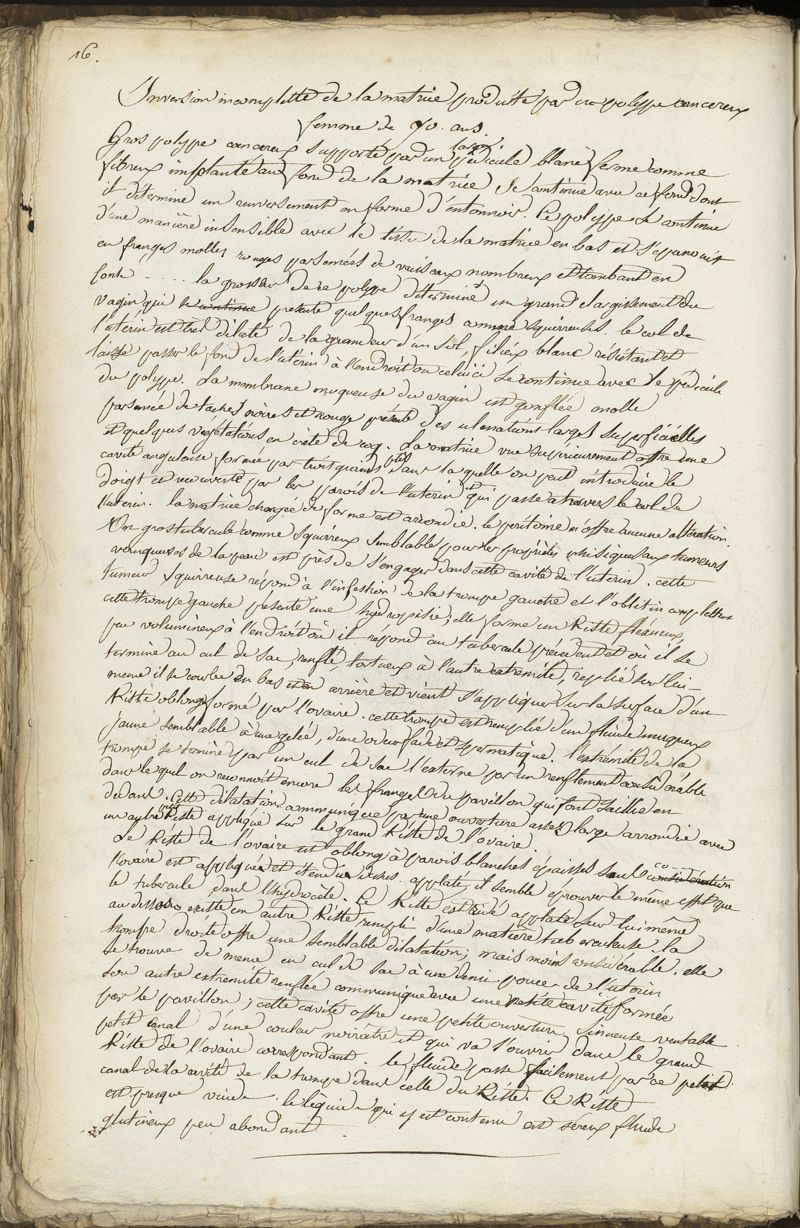 16.
Inversion incomplette de la matrice produite par un polype cancereux
femme de 70. ans.
Gros polype cancereux supporté par un large pédicule blanc ferme comme
fibreux implanté au fond de la matrice, se continue avec ce fond dont
il determine un renversement en forme d'entonnoir. Ce polype se continue
d'une manière insensible avec le tissu de la matrice en bas et s'epanouit
en franges molles rouges parsemées de vaisseaux nombreux et tombant en
fonte ..... la grosseur de ce polype determine un grand elargissement du
vagin qui se continue presente quelques franges comme squirreuses. le col de
l'uterin est tres dilaté de la grandeur d'un sol, filieux blanc resistant et
laisse passer le fond de l'uterin à l'endroit ou celui ci se continue avec le pédicule
du polype. La membrane muqueuse du vagin est gonflée molle
parsemée de taches noires et rouge présente des ulcerations larges superficielles
et quelques vegetations en crète de coq. La matrice vue superieurement offre une
cavité anguleuse formée par trois grands plis dans la quelle on peut introduire le
doigt ce recouverte par les parois de l'uterin qui passe a travers le col de
l'uterin. la matrice changée de forme est arrondie. le peritoine n'offre aucune alteration.
Un gros tubercule comme squirreux semblable pour les propriétés phisiques aux tumeurs
de la peau est près de s'engager dans cette cavité de l'uterin. cette
tumeur squirreuse repond à l'insertion de la trompe gauche et l'oblitère complettem
cette trompe gauche présente une hydropisie; elle forme un Kiste flexueux,
peu volumineux à l'endroit où il repond au tubercule précedent et où il se
termine au cul de sac, renflé, tortueux à l'autre extremité, replié sur lui-
meme il se courbe en bas et en arrière et vient s'appliquer sur la surface d'un
Kiste oblong formé par l'ovaire. cette trompe est remplie d'un fluide muqueux
jaune semblable à une gelée, d'une odeur fade et spermatique. l'extrémité de la
trompe se termine par un cul de sac l'externe par un renflement considérable
dans le quel on reconnoit encore les franges du pavillon qui font saillie en
dedans. Cette dilatation communique par une ouverture assez large arrondie avec
un autre Kiste appliqué sur le grand Kiste de l'ovaire.
Le Kiste de l'ovaire est oblong à parois blanches épaisses sous
l'ovaire est appliquée et étendue dessus. applati, il semble eprouver le même effet que
le tubercule dans l'hydrocèle. Ce Kiste est vidé applati sur lui même
au dessous existe un autre Kiste rempli d'une matière tuberculeuse. la
trompe droite offre une semblable dilatation; mais moins considérable. elle
se trouve de meme en cul de sac à un demi pouce de l'uterin
son autre extremité renflée communique avec une petite cavité formée
par le pavillon; cette cavité offre une petite ouverture sinueuse veritable
petit canal d'une couleur noirâtre et qui va s'ouvrir dans le grand
Kiste de l'ovaire correspondant. le fluide passe facilement par ce petit
canal de la cavité de la trompe dans celle du Kiste. Ce Kiste
est presque vuide. le liquide qui y est contenu est sereux fluide
glutineux peu abondant.